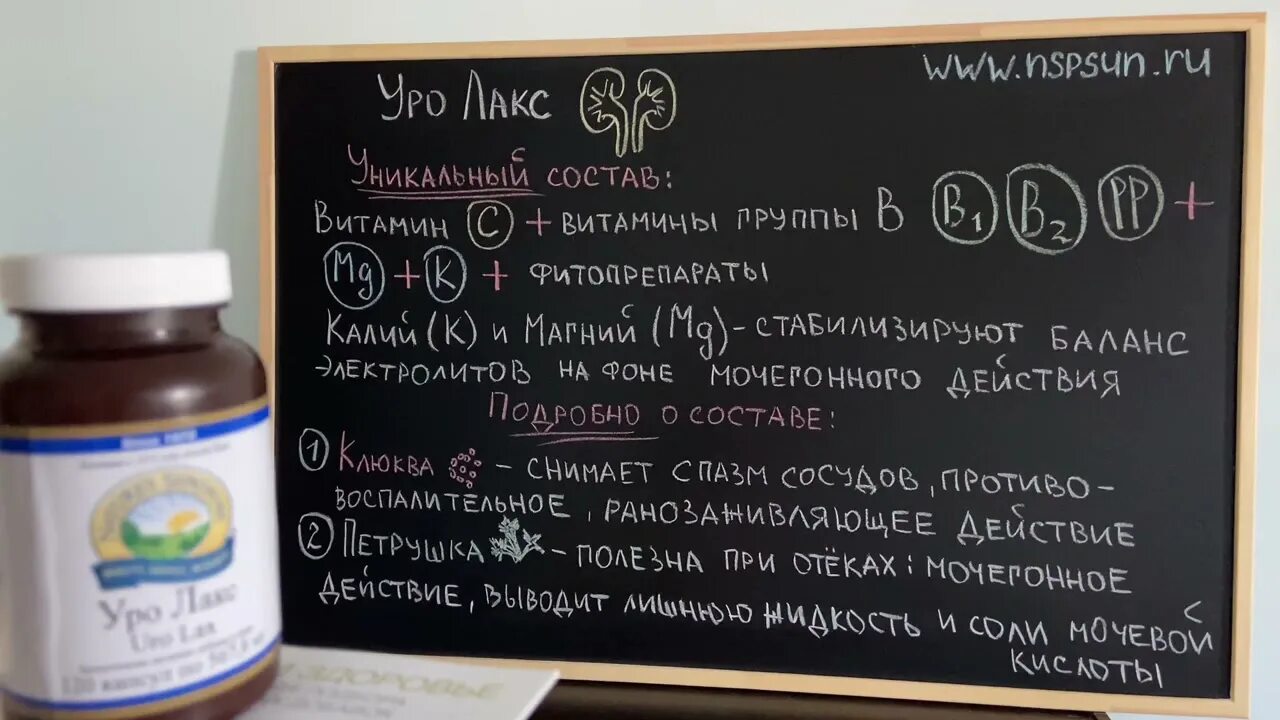 www.nspsun.ru
Уро Лакс
Уникальный состав:
Витамин C + витамины группы B B1 B2 PP +
Mg + K + фитопрепараты
Калий (K) и Магний (Mg) - стабилизируют баланс
электролитов на фоне мочегонного действия
Подробно о составе:
1 Клюква - снимает спазм сосудов, противо-
воспалительное, ранозаживляющее действие
2 Петрушка - полезна при отёках: мочегонное
действие, выводит лишнюю жидкость и соли мочевой
кислоты
Уро Лакс
Uro Lax
120 капсул по
ЗДОРОВЬЕ